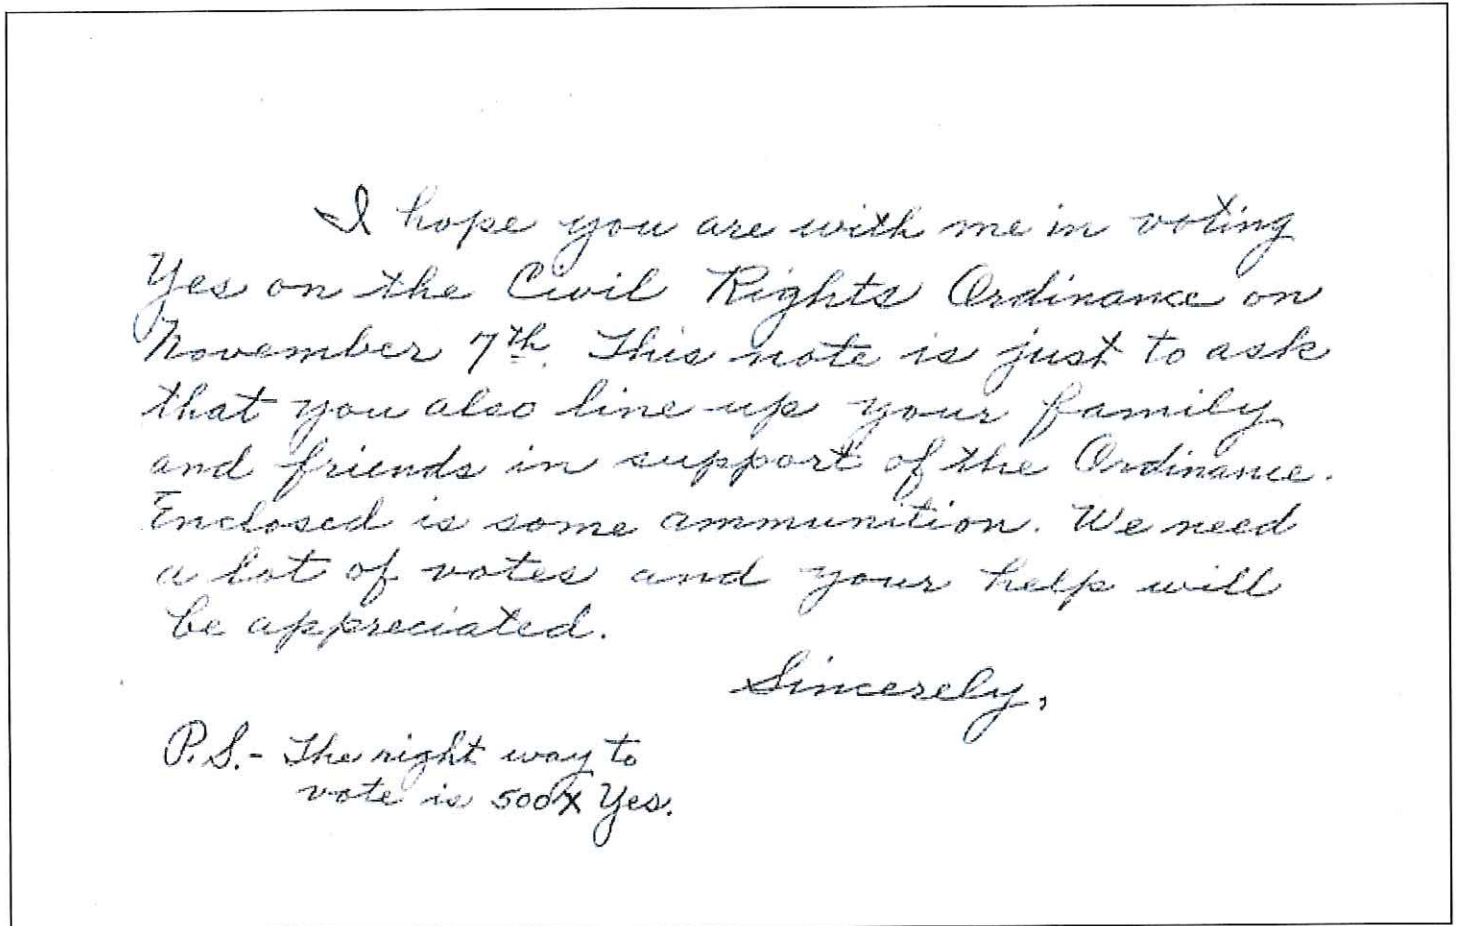 I hope you are with me in voting
Yes on the Civil Rights Ordinance on
November 7th. This note is just to ask
that you also line up your family
and friends in support of the Ordinance.
Enclosed is some ammunition. We need
a lot of votes and your help will
be appreciated.
Sincerely,
P.S. - The right way to
vote is 500 X Yes.